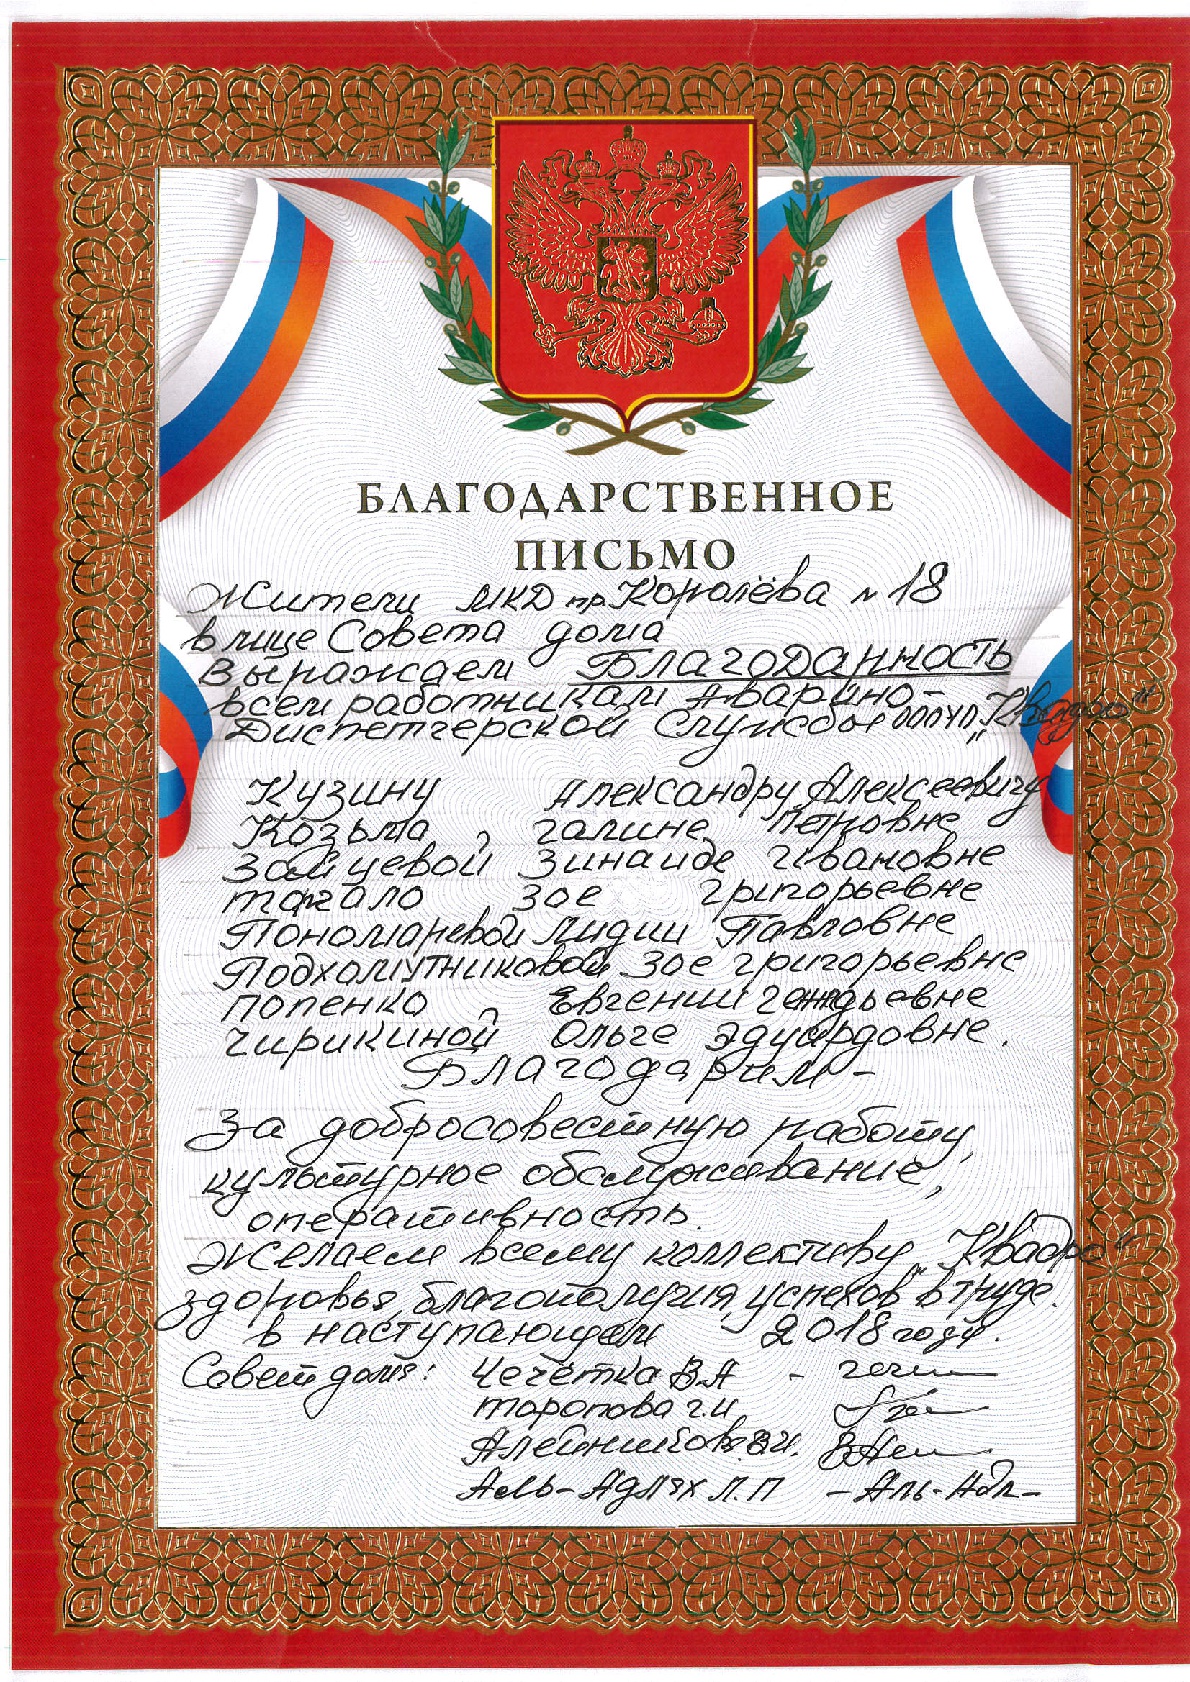 БЛАГОДАРСТВЕННОЕ
ПИСЬМО
Жители МКД пр. Королёва № 18
в лице Совета дома
Выражаем Благоданность
всем работникам Аварийно-
Диспетчерской Службы ООО УП „Квадро“
Кузину Александру Алексеевичу
Козьма, Галине Петровне
Зайцевой Зинаиде Ивановне
Зое Григорьевне
Пономаревой Лидии Павловне
Подхомутниковой Зое Григорьевне
Попенко, Евгении
Чирикиной Ольге Эдуардовне.
Благодарим -
За добросовестную работу,
культурное обслуживание,
оперативность.
Желаем всему коллективу „Квадро“
здоровья, благополучия, успехов в труде.
в наступающем 2018 году.
Совет дома: Чечётка В.А -
Торопова Г.И
Алейникова В.И.
Аль-Адлях Л.П - Аль-Адл-